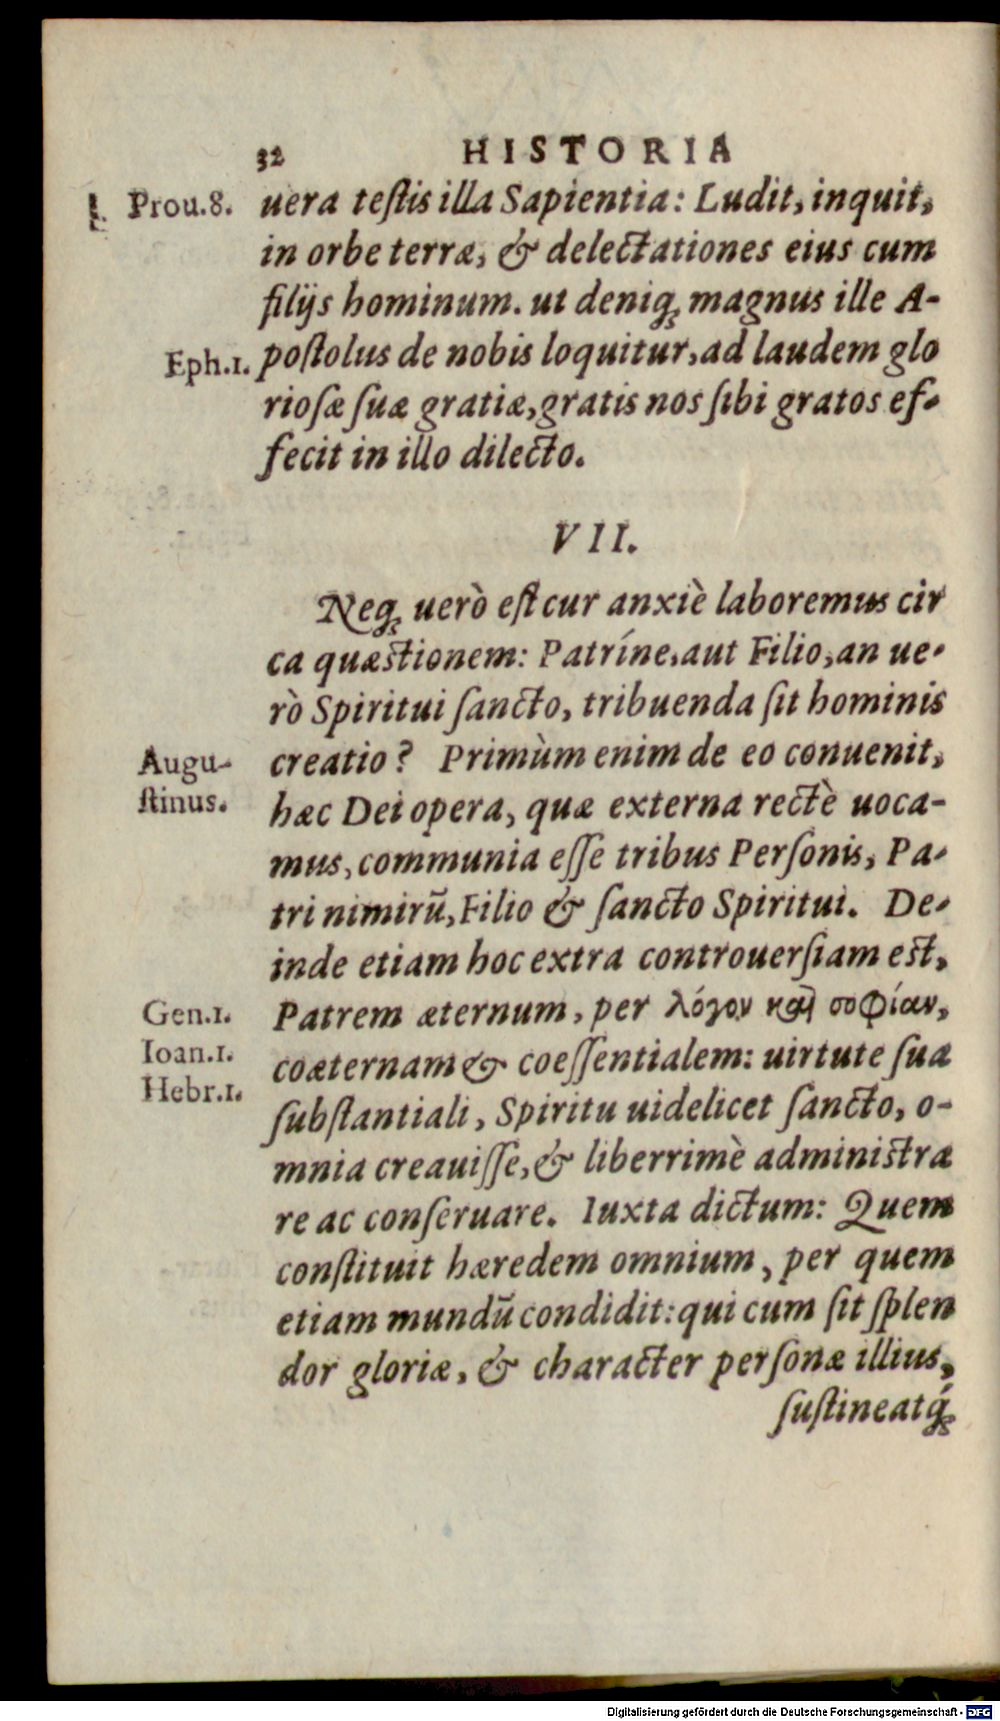 32 HISTORIA
Prou.8.
uera testis illa Sapientia: Ludit, inquit,
in orbe terræ, & delectationes eius cum
filijs hominum. ut deniq; magnus ille A-
Eph.1.
postolus de nobis loquitur, ad laudem glo
riosæ suæ gratiæ, gratis nos sibi gratos ef-
fecit in illo dilecto.
VII.
Neq; uerò est cur anxiè laboremus cir
ca quæstionem: Patríne, aut Filio, an ue-
rò Spiritui sancto, tribuenda sit hominis
Augu-
stinus.
creatio? Primùm enim de eo conuenit,
hæc Dei opera, quæ externa rectè uoca-
mus, communia esse tribus Personis, Pa-
tri nimirū, Filio & sancto Spiritui. De-
inde etiam hoc extra controuersiam est,
Gen.1.
Ioan.1.
Hebr.1.
Patrem æternum, per λόγον καὶ σοφίαν,
coæternam & coessentialem: uirtute sua
substantiali, Spiritu uidelicet sancto, o-
mnia creauisse, & liberrimè administra
re ac conseruare. Iuxta dictum: Quem
constituit hæredem omnium, per quem
etiam mundū condidit: qui cum sit splen
dor gloriæ, & character personæ illius,
sustineatq́;
Digitalisierung gefördert durch die Deutsche Forschungsgemeinschaft - DFG